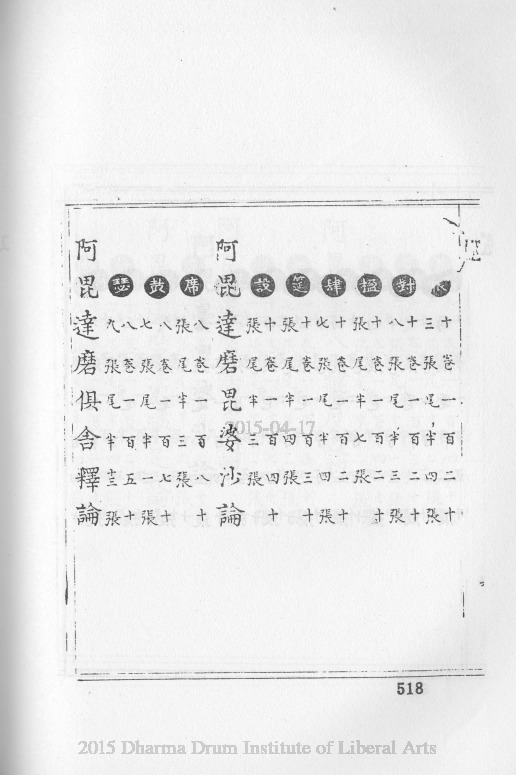 帳 十卷一百二十
三張尾半四張
對 十卷一百二十
八張尾半三張
楹 十卷一百二十
張尾半七張
肆 十卷一百二十
七張尾半四張
筵 十卷一百三十
張尾半四張
設 十卷一百四十
張尾半三張
阿毘達磨毘婆沙論
席 八卷一百八十
張尾半三張
鼓 八卷一百七十
七張尾半一張
瑟 八卷一百五十
九張尾半十三張
阿毘達磨俱舍釋論
518
2015-04-17
2015 Dharma Drum Institute of Liberal Arts